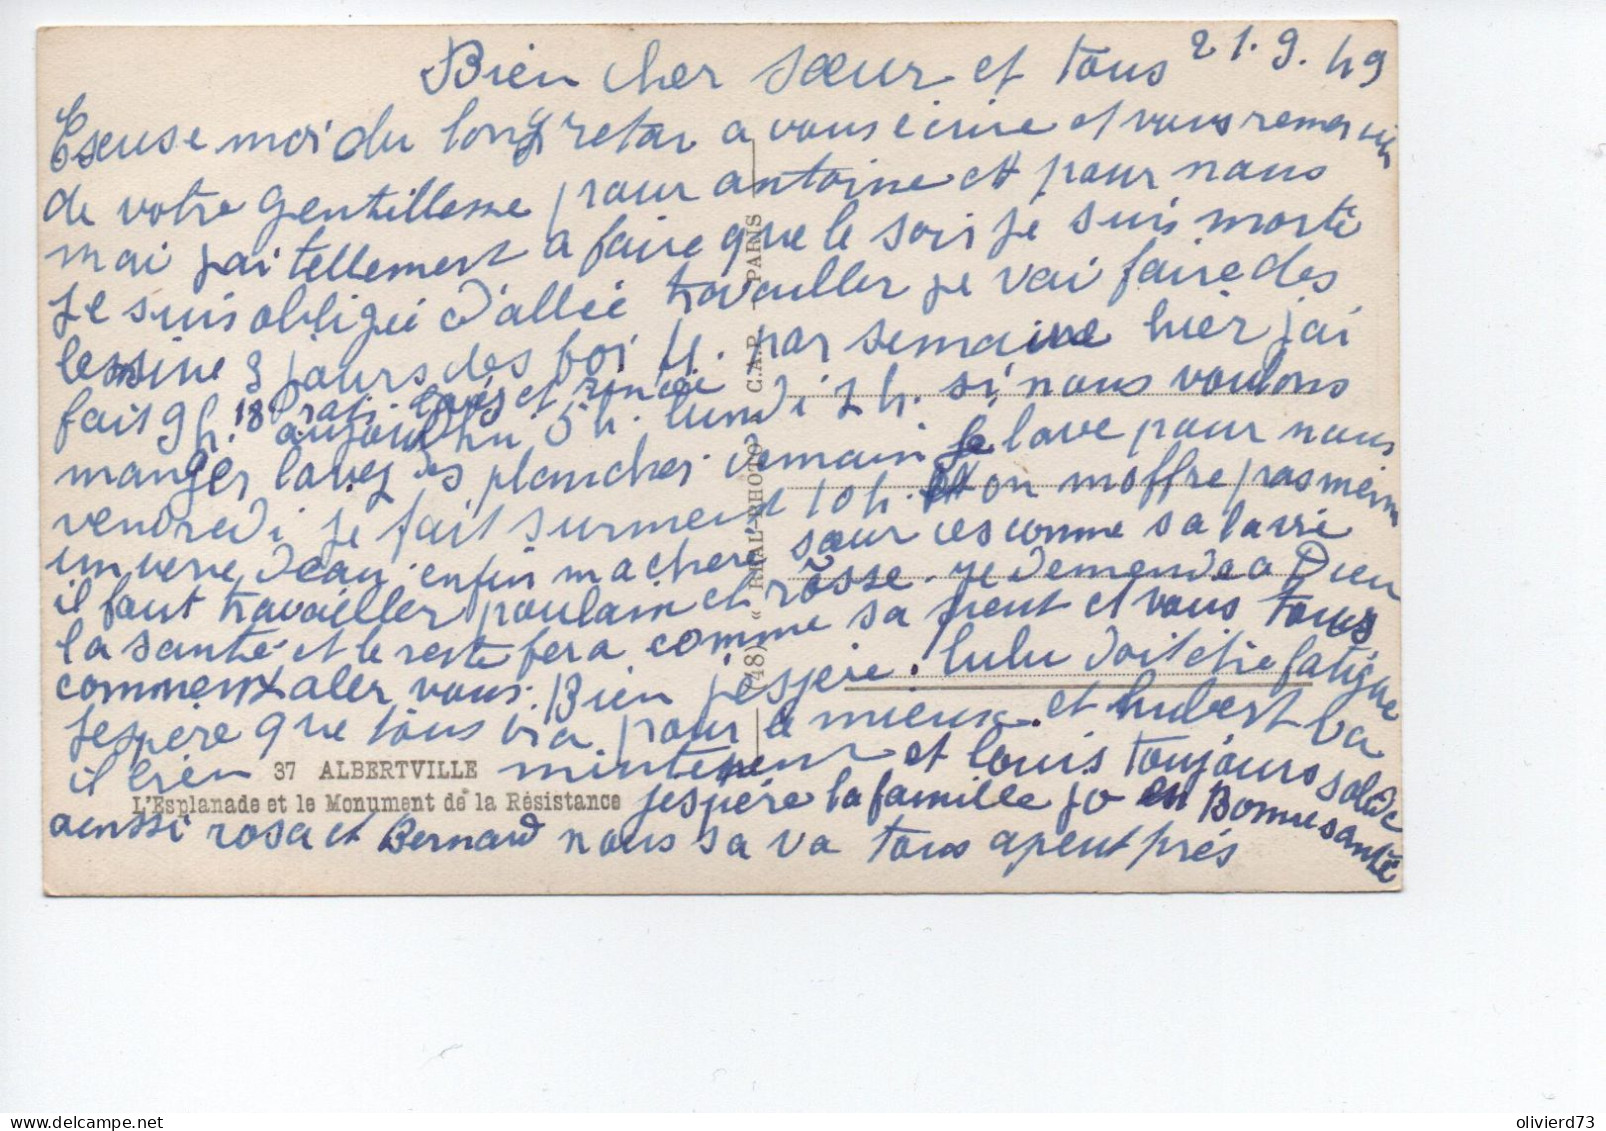 Bien cher sœur et tous 21.9.49
Escuse moi du long retar a vous ecrire et vous remersier
de votre gentillesse pour antoine et pour nous
moi jai tellement a faire que le soir je suis morte
je suis obligée d'allée travailler je vai faire des
lessive 3 jours des foi 4. par semaine hier jai
fait 9h. 18 lavés et rincée aujourdhu 5h. lundi 2h. si nous voulons
manger lavez les planches. demain je lave pour nous
vendredi je fait surment 10h. et on moffre pas mème
un verre deau. enfin ma chere sœur ces comme sa la vie
il faut travailler pour lain et rosse. je demende a Dieu
la santé et le reste fera comme sa peut et vous tous
comment aler vous. Bien j'espère. lulu doit etre fatigue
jespère que tous ira pour le mieux. et hubert va
il bien mintenent et louis toujours soldé
jespère la famille jo en Bonne santé
aenssi rosa et Bernard nous sa va tous apeut près
37 ALBERTVILLE
L'Esplanade et le Monument de la Résistance
(48) « RÉAL-PHOTO » C.A.P. — PARIS
olivierd73